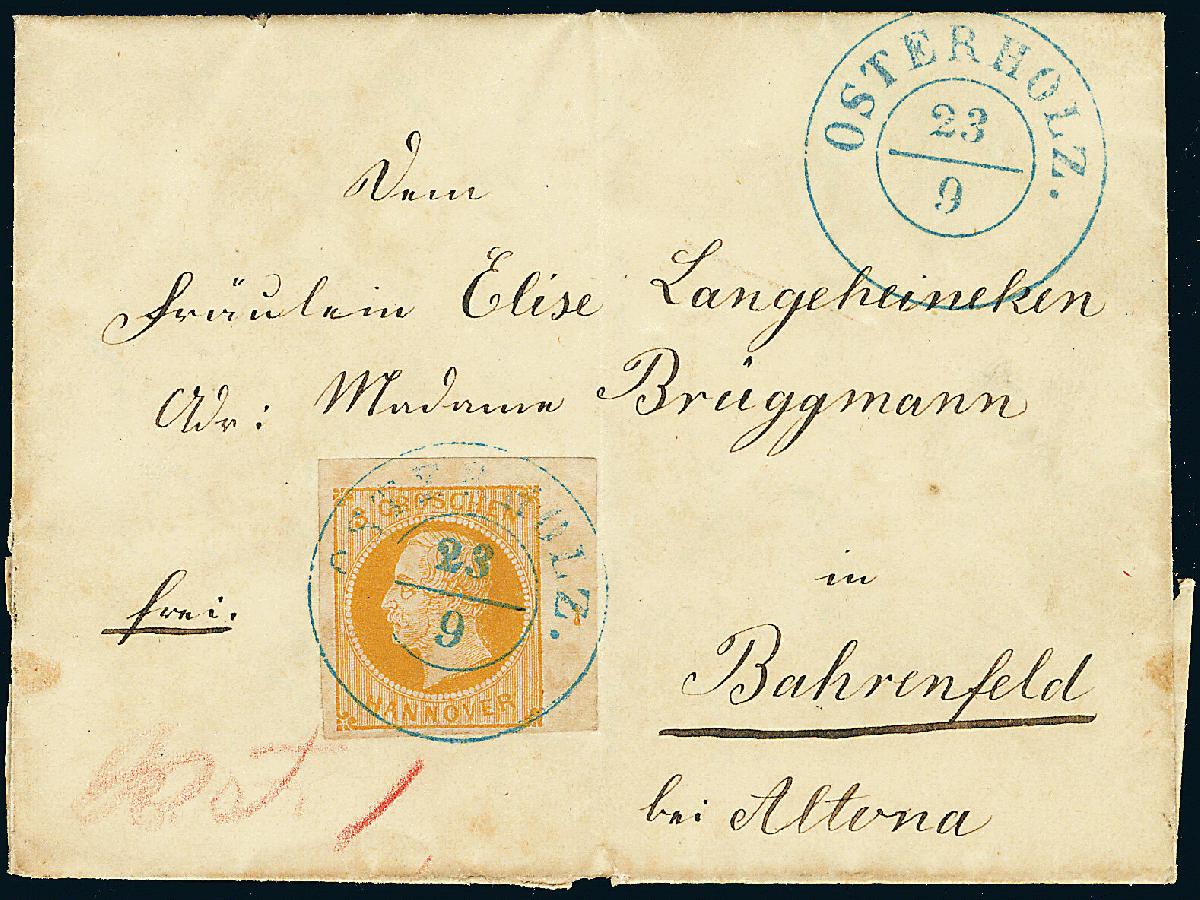 OSTERHOLZ.
23
9
Dem
Fräulein Elise Langeheineken
Adr: Madame Brüggmann
OSTERHOLZ.
3 GROSCHEN
23
9
HANNOVER
frei.
in
Bahrenfeld
bei Altona